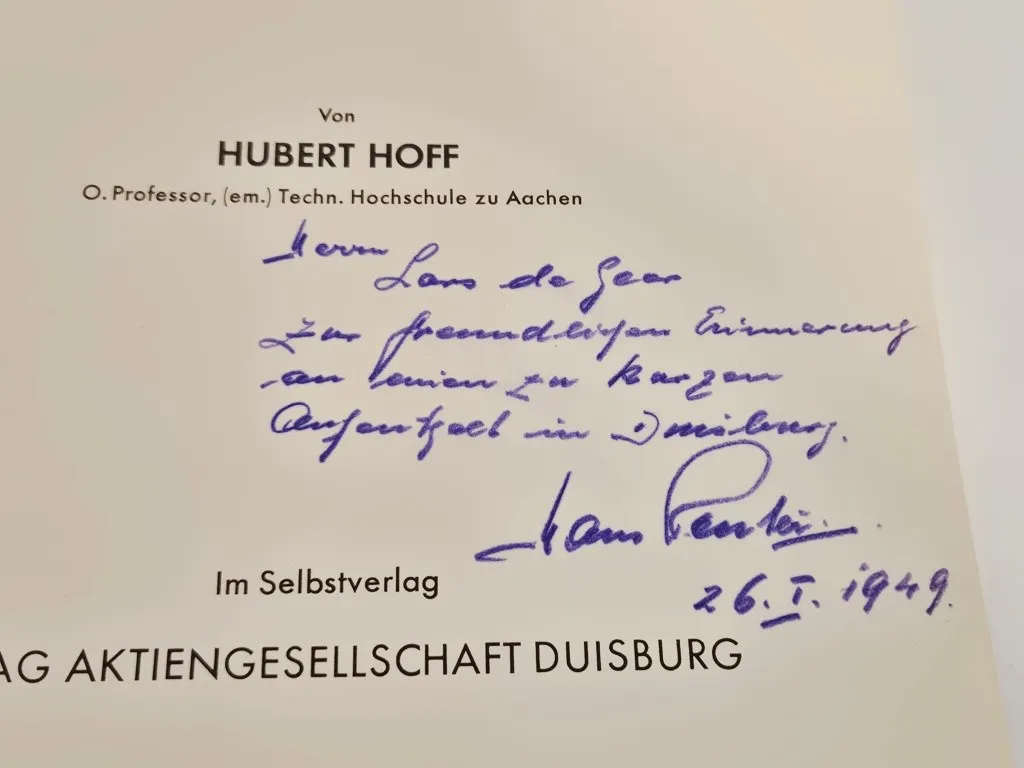 Von
HUBERT HOFF
O. Professor, (em.) Techn. Hochschule zu Aachen
Herrn
Lars de Geer
zur freundlichen Erinnerung
an einen zu kurzen
Aufenthalt in Duisburg.
Hans
26. I. 1949.
Im Selbstverlag
AG AKTIENGESELLSCHAFT DUISBURG